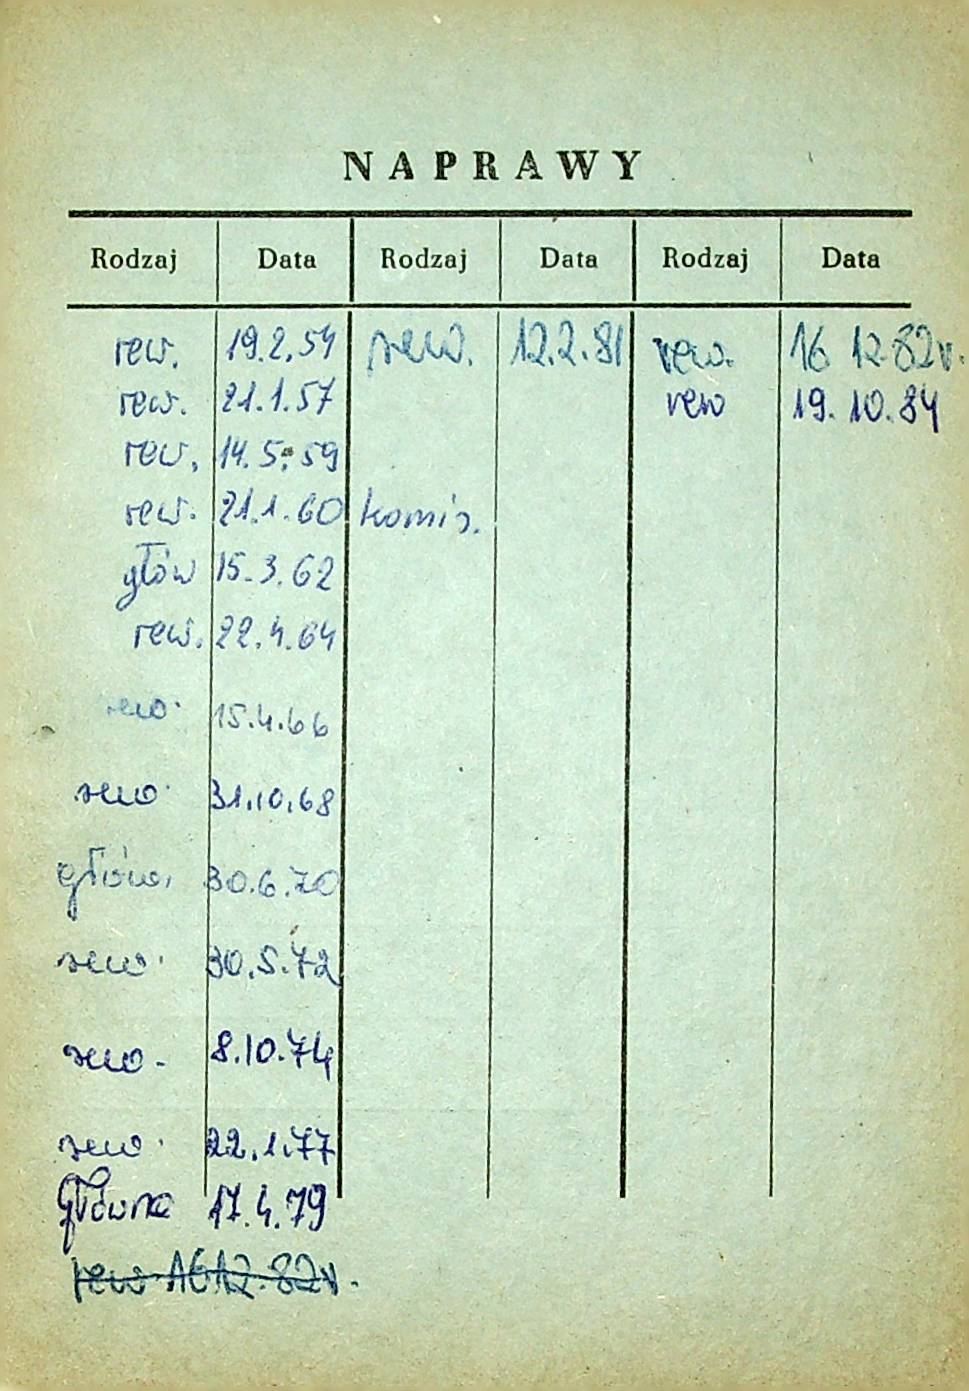 NAPRAWY
Rodzaj Data Rodzaj Data Rodzaj Data
rew. 19.2.54 rew. 12.2.81 rew. 16 12 82r.
rew. 21.1.57 rew 19.10.84
rew. 14.5.59
rew. 21.1.60 komis.
głów 15.3.62
rew. 22.4.64
rew. 15.4.66
rew. 31.10.68
główn. 30.6.70
rew. 30.5.72
rew. 8.10.74
rew. 22.1.77
główna 17.4.79
rew 16 12. 82r.